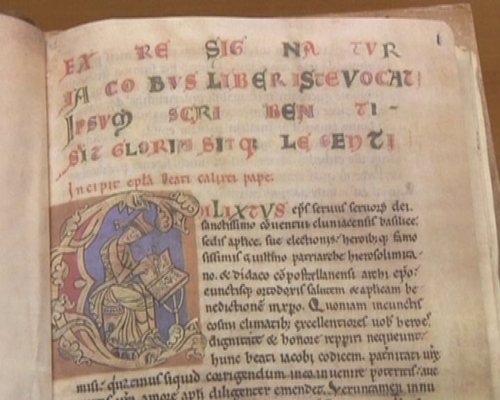 EX RE SIG NA TUR
IACOBUS LIBER ISTE VOCATUR
IPSUM SCRIBENTI-
SIT GLORIA SITQ; LEGENTI
Incipit epła beati calixti pape.
CALIXTUS eps servus servorū dei.
sanctissimo conventui cluniacensis basilice.
sedis aplice sue electionis; heroibꝰq; famo
sissimis Guillmo patriarche hierosolimita
no. & didaco cōpostellanensi archi epo;
cunctisq; orthodoxis salutem & aplicam be
nedictionē in xpo. Quoniam in cunctis
cosmi climatibꝰ excellentiores vob heroes
dignitate & honore repperiri nequeunt.
hunc beati iacobi codicem. paternitati vre
misi. quatinus siquid corrigendum in eo invenire poteritis. auc
amore apli diligenter emendet. Veruntamen innu